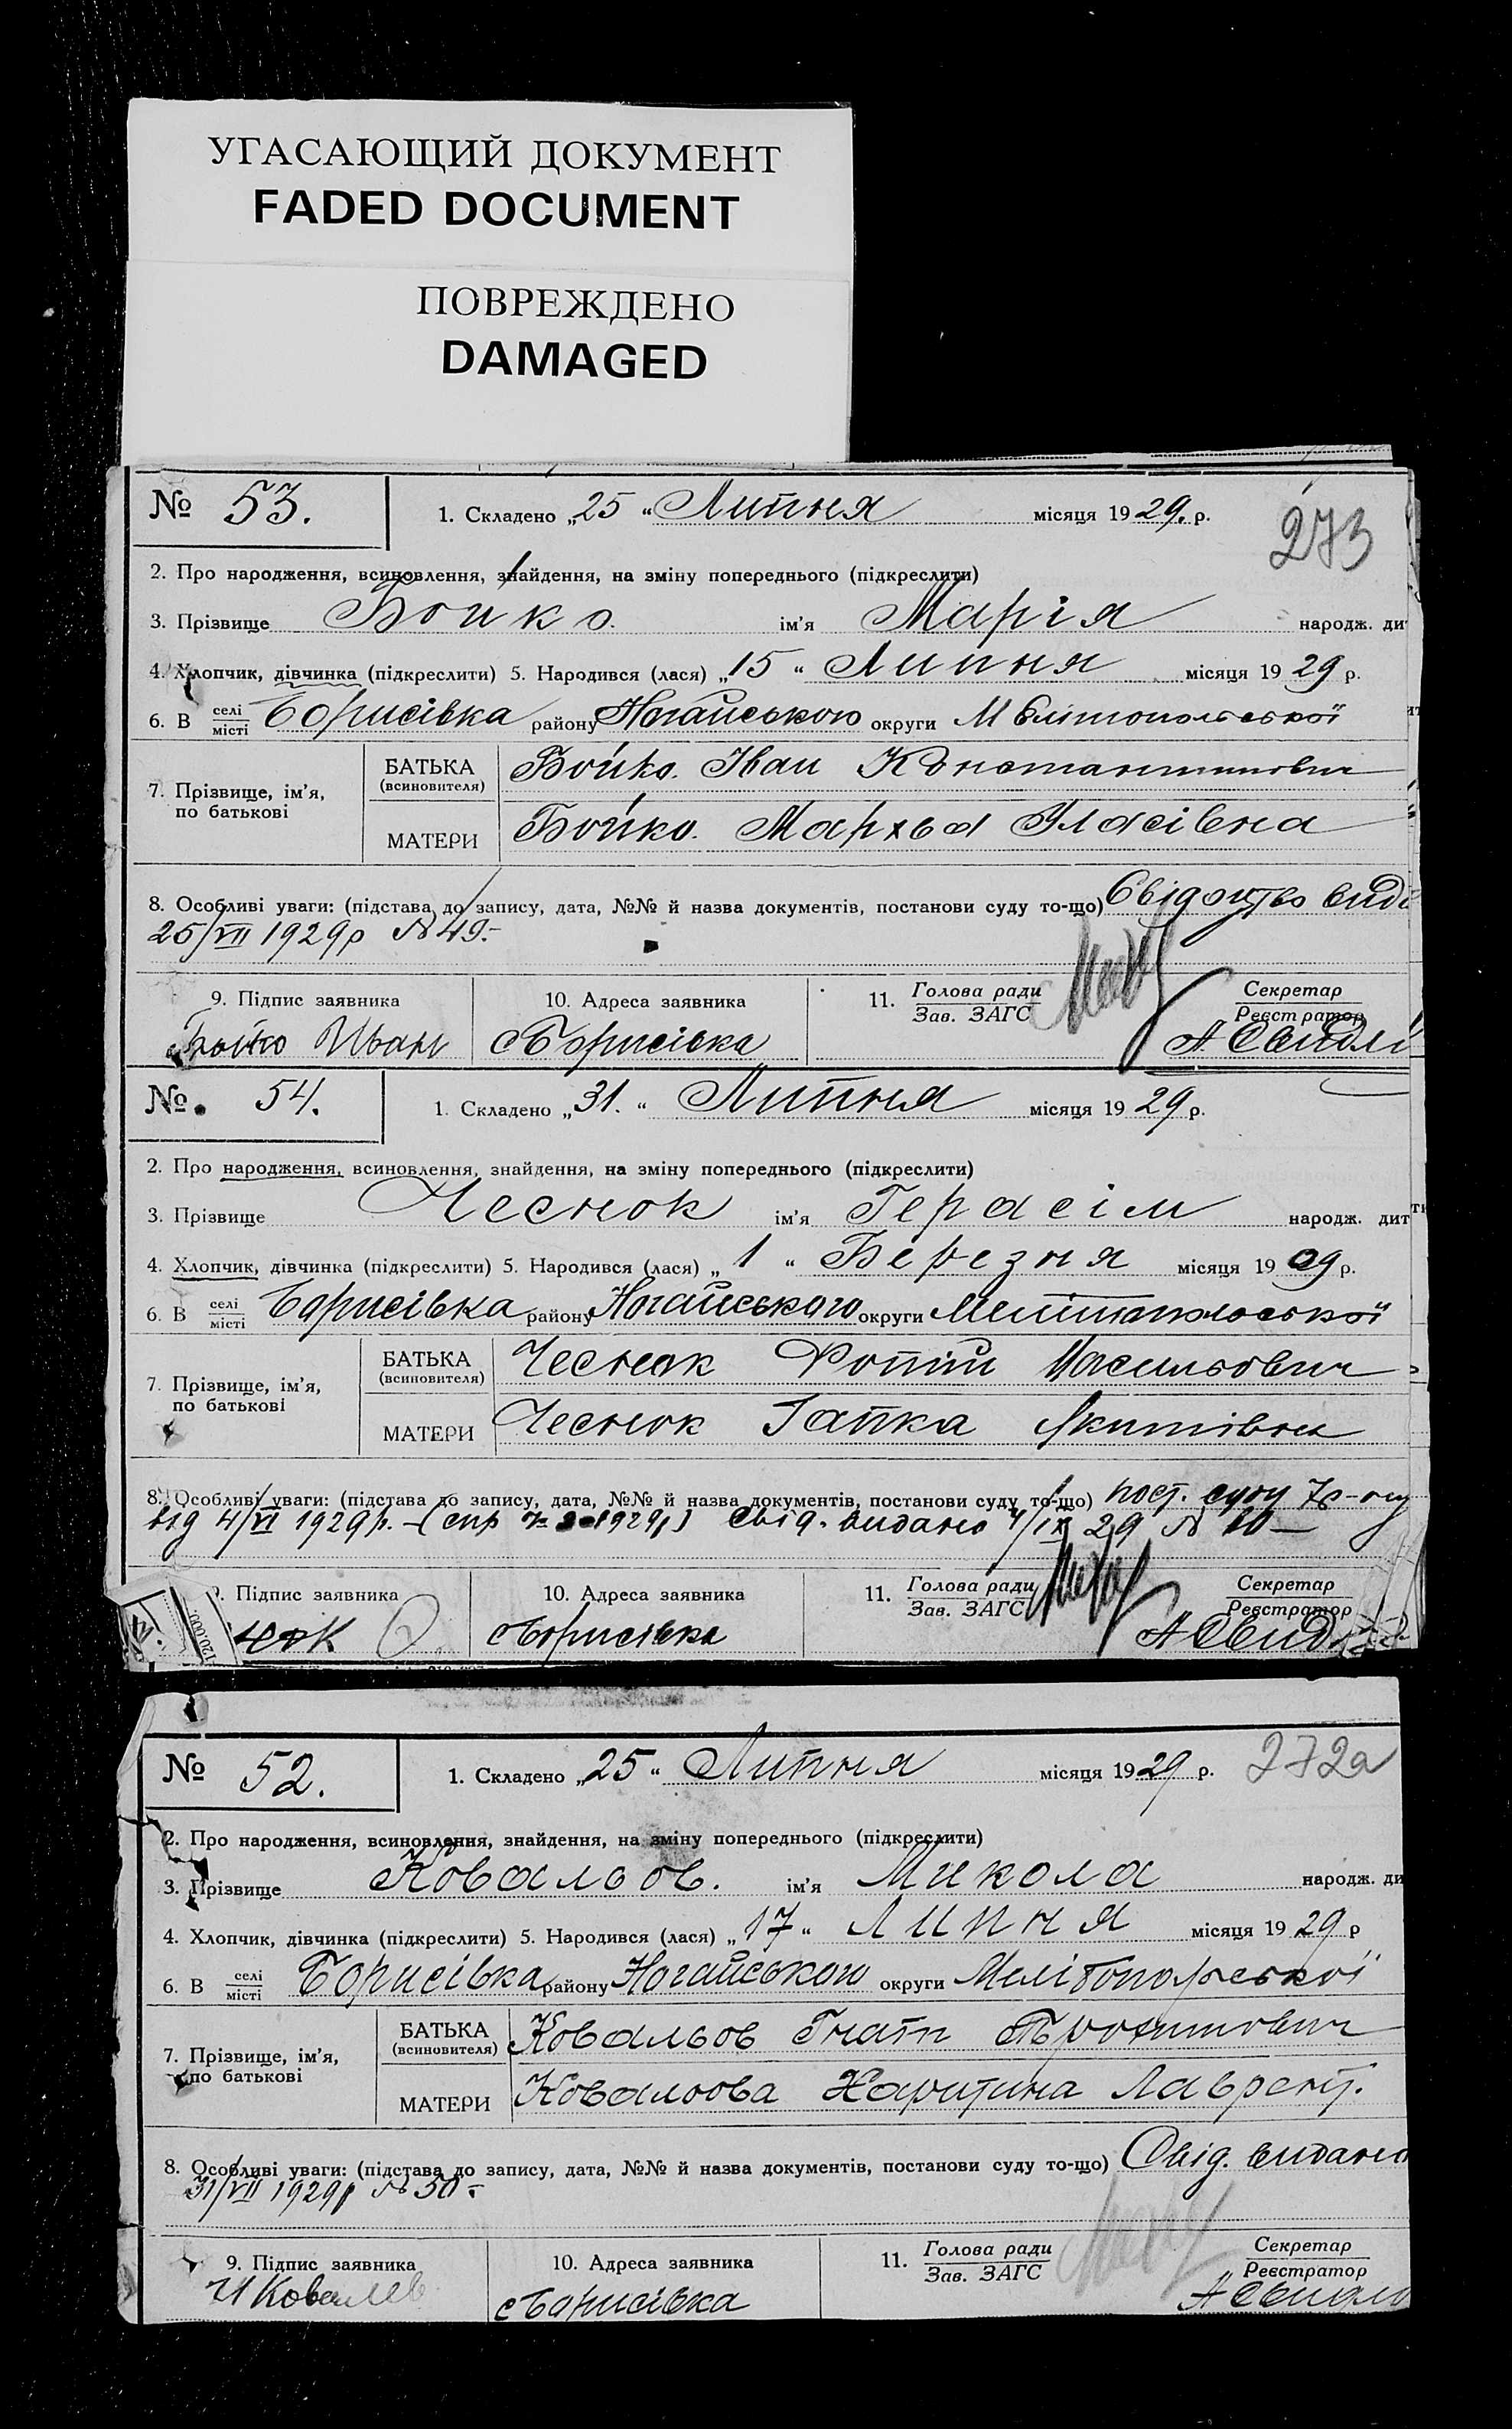 УГАСАЮЩИЙ ДОКУМЕНТ
FADED DOCUMENT
ПОВРЕЖДЕНО
DAMAGED
№ 53. 1. Складено „25 “ Липня місяця 1929. р. 273
2. Про народження, всиновлення, знайдення, на зміну попереднього (підкреслити)
3. Прізвище Бойко. ім’я Марія народж. ди
4. Хлопчик, дівчинка (підкреслити) 5. Народився (лася) „15 “ Липня місяця 1929 р.
6. В селі місті Борисівка району Ногайського округи Мелітопольської
7. Прізвище, ім’я, по батькові
БАТЬКА (всиновителя) Бойко. Іван Константинович
МАТЕРИ Бойко. Мархва Уласівна
8. Особливі уваги: (підстава до запису, дата, №№ й назва документів, постанови суду то-що) Свідоцтво вида
25/VII 1929р № 49.-
9. Підпис заявника 10. Адреса заявника 11. Голова ради Зав. ЗАГС Секретар Реєстратор
Бойко Иван с Борисівка
№ 54. 1. Складено „31. “ Липня місяця 1929 р.
2. Про народження, всиновлення, знайдення, на зміну попереднього (підкреслити)
3. Прізвище Чеснок ім’я Герасім народж. дит
4. Хлопчик, дівчинка (підкреслити) 5. Народився (лася) „ 1 “ Березня місяця 1909 р.
6. В селі місті Борисівка району Ногайського округи Мелітопольської
7. Прізвище, ім’я, по батькові
БАТЬКА (всиновителя) Чеснок Фотій Васильович
МАТЕРИ Чеснок Гапка Якимівна
8. Особливі уваги: (підстава до запису, дата, №№ й назва документів, постанови суду то-що) пост. суду
від 4/VI 1929р. – (спр 1929р) Свід. видано 4/IX 29 № 60 —
9. Підпис заявника 10. Адреса заявника 11. Голова ради Зав. ЗАГС Секретар Реєстратор
нок с Борисівка
120.000.
№ 52. 1. Складено „25 “ Липня місяця 1929 р. 272а
2. Про народження, всиновлення, знайдення, на зміну попереднього (підкреслити)
3. Прізвище Ковальов. ім’я Микола народж. ди
4. Хлопчик, дівчинка (підкреслити) 5. Народився (лася) „17 “ Липня місяця 1929 р
6. В селі місті Борисівка району Ногайського округи Мелітопольської
7. Прізвище, ім’я, по батькові
БАТЬКА (всиновителя) Ковальов Гнат Трохимович
МАТЕРИ Ковальова Харитина Лаврент.
8. Особливі уваги: (підстава до запису, дата, №№ й назва документів, постанови суду то-що) Свід. видано
31/VII 1929р № 50 -
9. Підпис заявника 10. Адреса заявника 11. Голова ради Зав. ЗАГС Секретар Реєстратор
И Ковалев с Борисівка